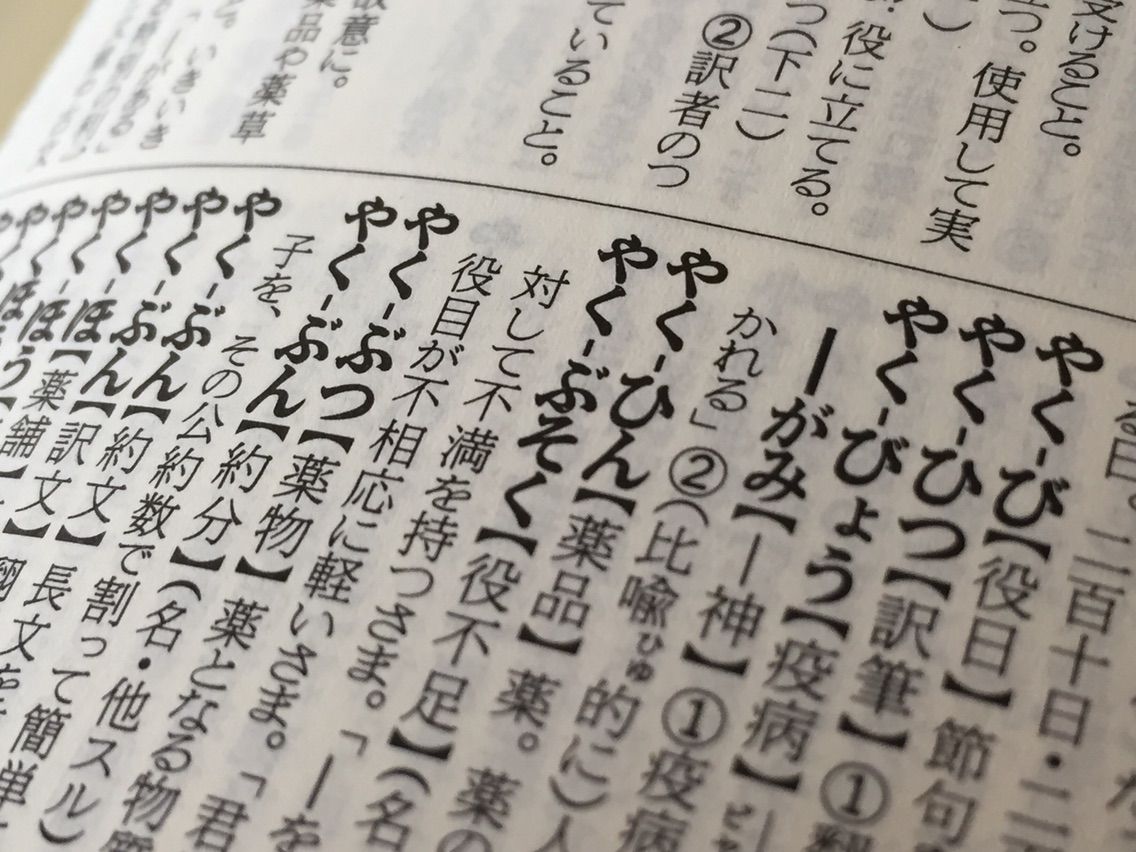 受けること。
つ。使用して実
）
役に立てる。
つ(下二)
②訳者のつ
ていること。
故意に。
薬品や薬草
いきいき
る日。二百十日・二
やく-び【役日】節句
やく-ひつ【訳筆】①翻
やく-びょう【疫病】
―がみ【―神】①疫病
かれる」②(比喩ひゆ的に)人
やく-ひん【薬品】薬。薬の
やく-ぶそく【役不足】(名
対して不満を持つさま。「―を
役目が不相応に軽いさま。「君
やく-ぶつ【薬物】薬となる物質
やく-ぶん【約分】(名・他スル)
子を、その公約数で割って簡単
やく-ぶん【約文】長文を
やく-ぶん【訳文】翻
やく-ほ【薬舗】
やく-ほう